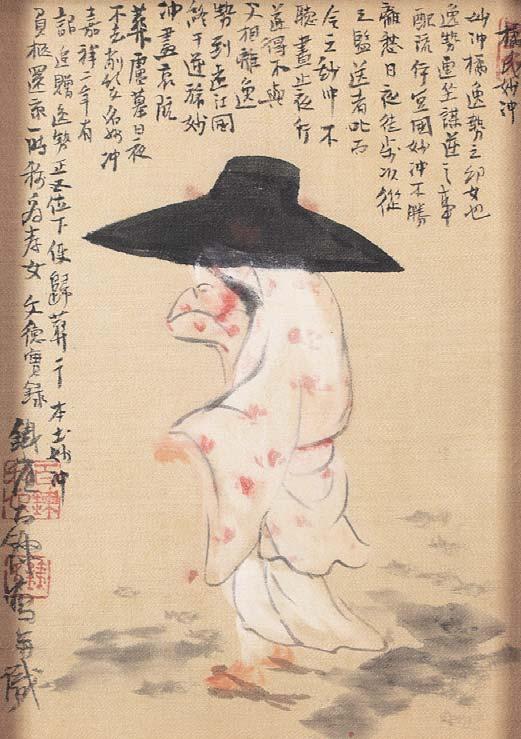 橘氏妙沖
妙沖橘逸勢之女也
逸勢連坐謀逆之事
配流伊豆國妙沖不勝
離愁日夜徒歩以從
之監送者叱而
令去妙沖不
聴晝止夜行
遂得不與
父相離逸
勢到遠江國
終于逆旅妙
沖盡哀
葬廬墓日夜
不去削髪名妙沖
嘉祥二年有
詔追贈逸勢正五位下使歸葬于本土妙沖
負柩還京一時称為孝女 文徳實録
鐵崖百錬寫并識